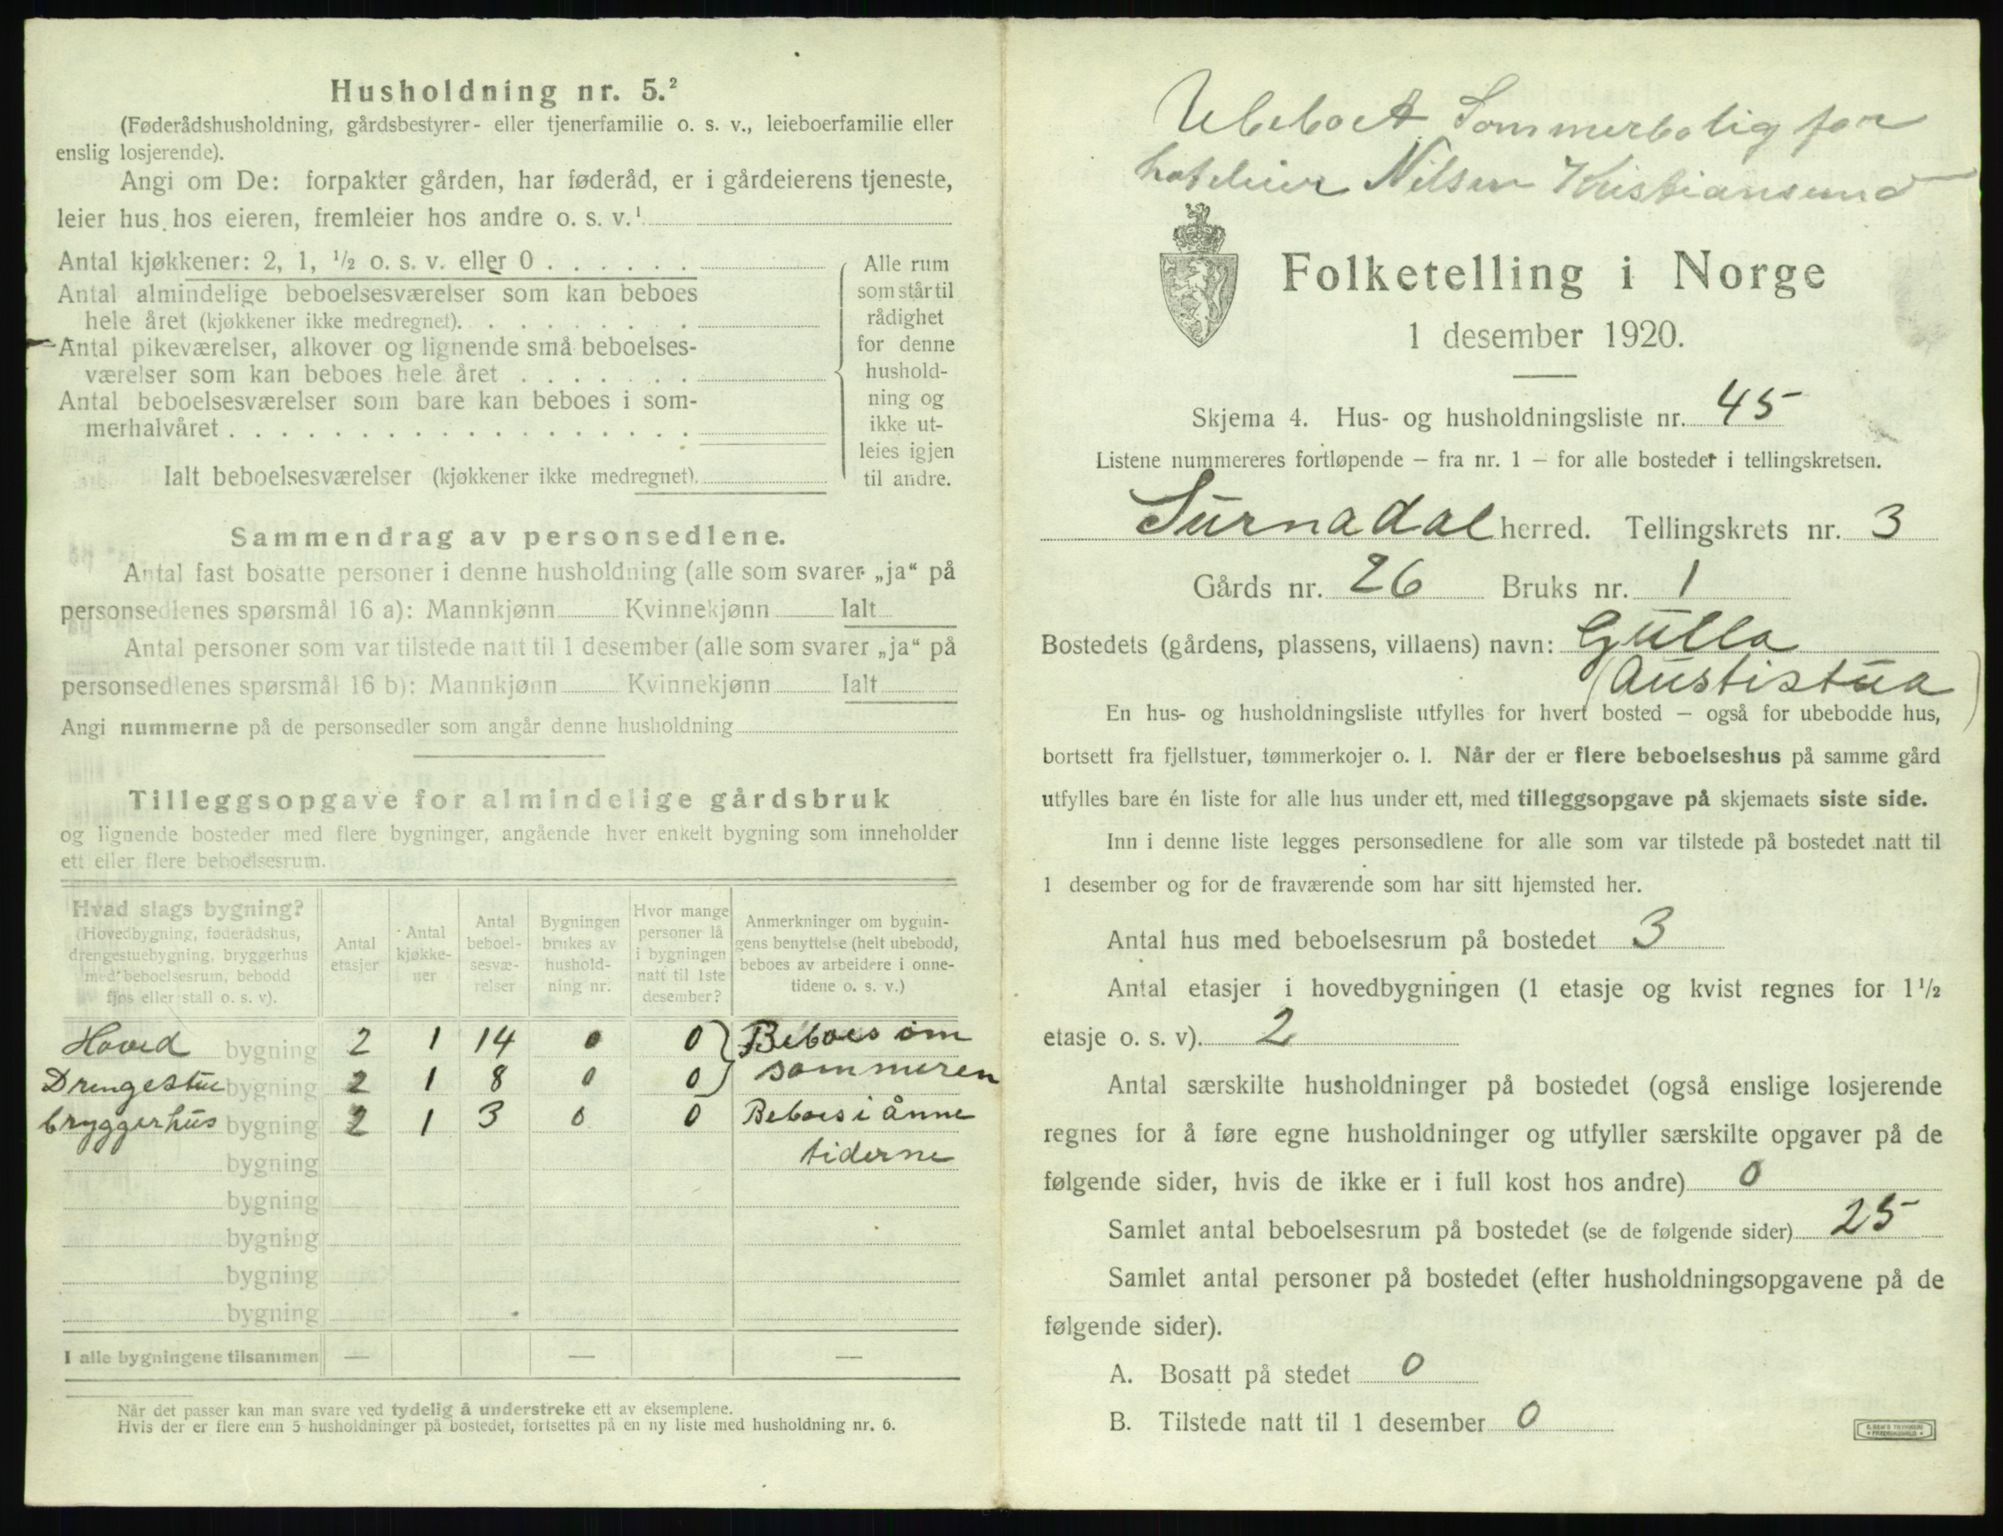 Husholdning nr. 5.²
(Føderådshusholdning, gårdsbestyrer- eller tjenerfamilie o. s. v., leieboerfamilie eller
enslig losjerende).
Angi om De: forpakter gården, har føderåd, er i gårdeierens tjeneste,
leier hus hos eieren, fremleier hos andre o. s. v.¹
Antal kjøkkener: 2, 1, ½ o. s. v. eller 0 . . . . . .
Antal almindelige beboelsesværelser som kan beboes
hele året (kjøkkener ikke medregnet). . . . . . . . .
Antal pikeværelser, alkover og lignende små beboelses-
værelser som kan beboes hele året . . . . . . .
Antal beboelsesværelser som bare kan beboes i som-
merhalvåret . . . . . . . . . . . . . . . . . .
Ialt beboelsesværelser (kjøkkener ikke medregnet).
Alle rum
som står til
rådighet
for denne
hushold-
ning og
ikke ut-
leies igjen
til andre.
Sammendrag av personsedlene.
Antal fast bosatte personer i denne husholdning (alle som svarer „ja“ på
personsedlenes spørsmål 16 a): Mannkjønn Kvinnekjønn Ialt
Antal personer som var tilstede natt til 1 desember (alle som svarer „ja“ på
personsedlenes spørsmål 16 b): Mannkjønn Kvinnekjønn Ialt
Angi nummerne på de personsedler som angår denne husholdning
Tilleggsopgave for almindelige gårdsbruk
og lignende bosteder med flere bygninger, angående hver enkelt bygning som inneholder
ett eller flere beboelsesrum.
Hvad slags bygning?
(Hovedbygning, føderådshus,
drengestuebygning, bryggerhus
med beboelsesrum, bebodd
fjøs eller stall o. s. v).
Antal
etasjer
Antal
kjøkke-
ner
Antal
beboel-
sesvæ-
relser
Bygningen
brukes av
hushold-
ning nr.
Hvor mange
personer lå
i bygningen
natt til 1ste
desember?
Anmerkninger om bygnin-
gens benyttelse (helt ubebodd,
beboes av arbeidere i onne-
tidene o. s. v.)
Hoved bygning 2 1 14 0 0 } Beboes om
Drengestue bygning 2 1 8 0 0 } sommeren
bryggerhus bygning 2 1 3 0 0 Beboes i ånne
bygning tiderne
bygning
bygning
bygning
bygning
I alle bygningene tilsammen — — —
Når det passer kan man svare ved tydelig å understreke ett av eksemplene.
Hvis der er flere enn 5 husholdninger på bostedet, fortsettes på en ny liste med husholdning nr. 6.
Ubeboet Sommerbolig for
hoteleier Nilsen Kristiansund
Folketelling i Norge
1 desember 1920.
Skjema 4. Hus- og husholdningsliste nr. 45
Listene nummereres fortløpende – fra nr. 1 – for alle bosteder i tellingskretsen.
Surnadal herred. Tellingskrets nr. 3
Gårds nr. 26 Bruks nr. 1
Bostedets (gårdens, plassens, villaens) navn: Gulla
(Austistua)
En hus- og husholdningsliste utfylles for hvert bosted – også for ubebodde hus,
bortsett fra fjellstuer, tømmerkojer o. l. Når der er flere beboelseshus på samme gård
utfylles bare én liste for alle hus under ett, med tilleggsopgave på skjemaets siste side.
Inn i denne liste legges personsedlene for alle som var tilstede på bostedet natt til
1 desember og for de fraværende som har sitt hjemsted her.
Antal hus med beboelsesrum på bostedet 3
Antal etasjer i hovedbygningen (1 etasje og kvist regnes for 1½
etasje o. s. v). 2
Antal særskilte husholdninger på bostedet (også enslige losjerende
regnes for å føre egne husholdninger og utfyller særskilte opgaver på de
følgende sider, hvis de ikke er i full kost hos andre) 0
Samlet antal beboelsesrum på bostedet (se de følgende sider) 25
Samlet antal personer på bostedet (efter husholdningsopgavene på de
følgende sider).
A. Bosatt på stedet 0
B. Tilstede natt til 1 desember 0